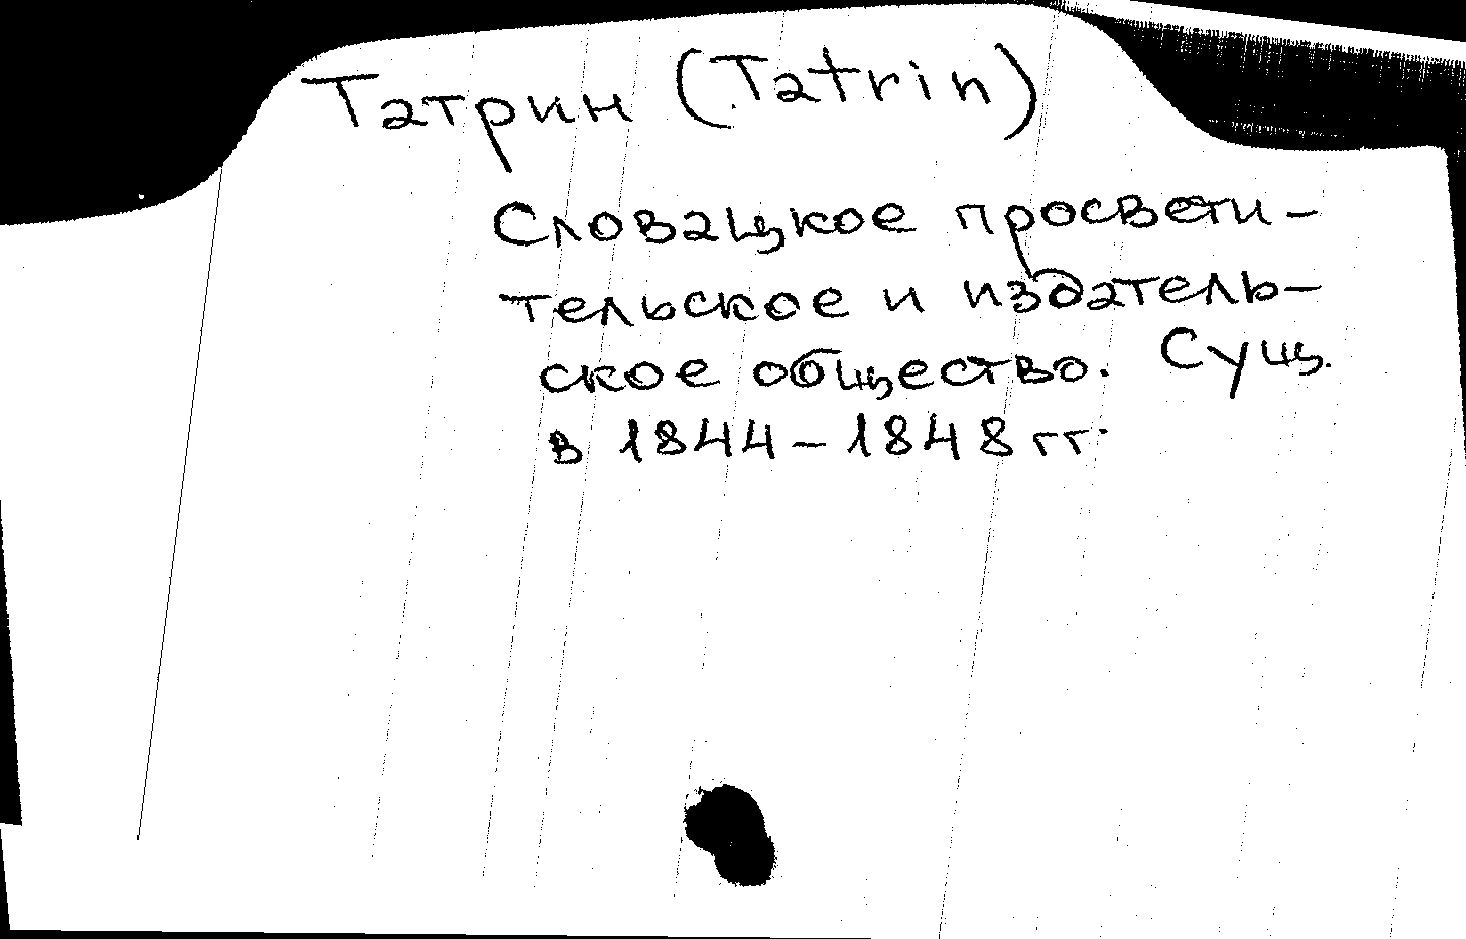 Татрин (Tatrin)
Словацкое просвети-
тельское и издатель-
ское общество. Сущ.
в 1844-1848 гг.